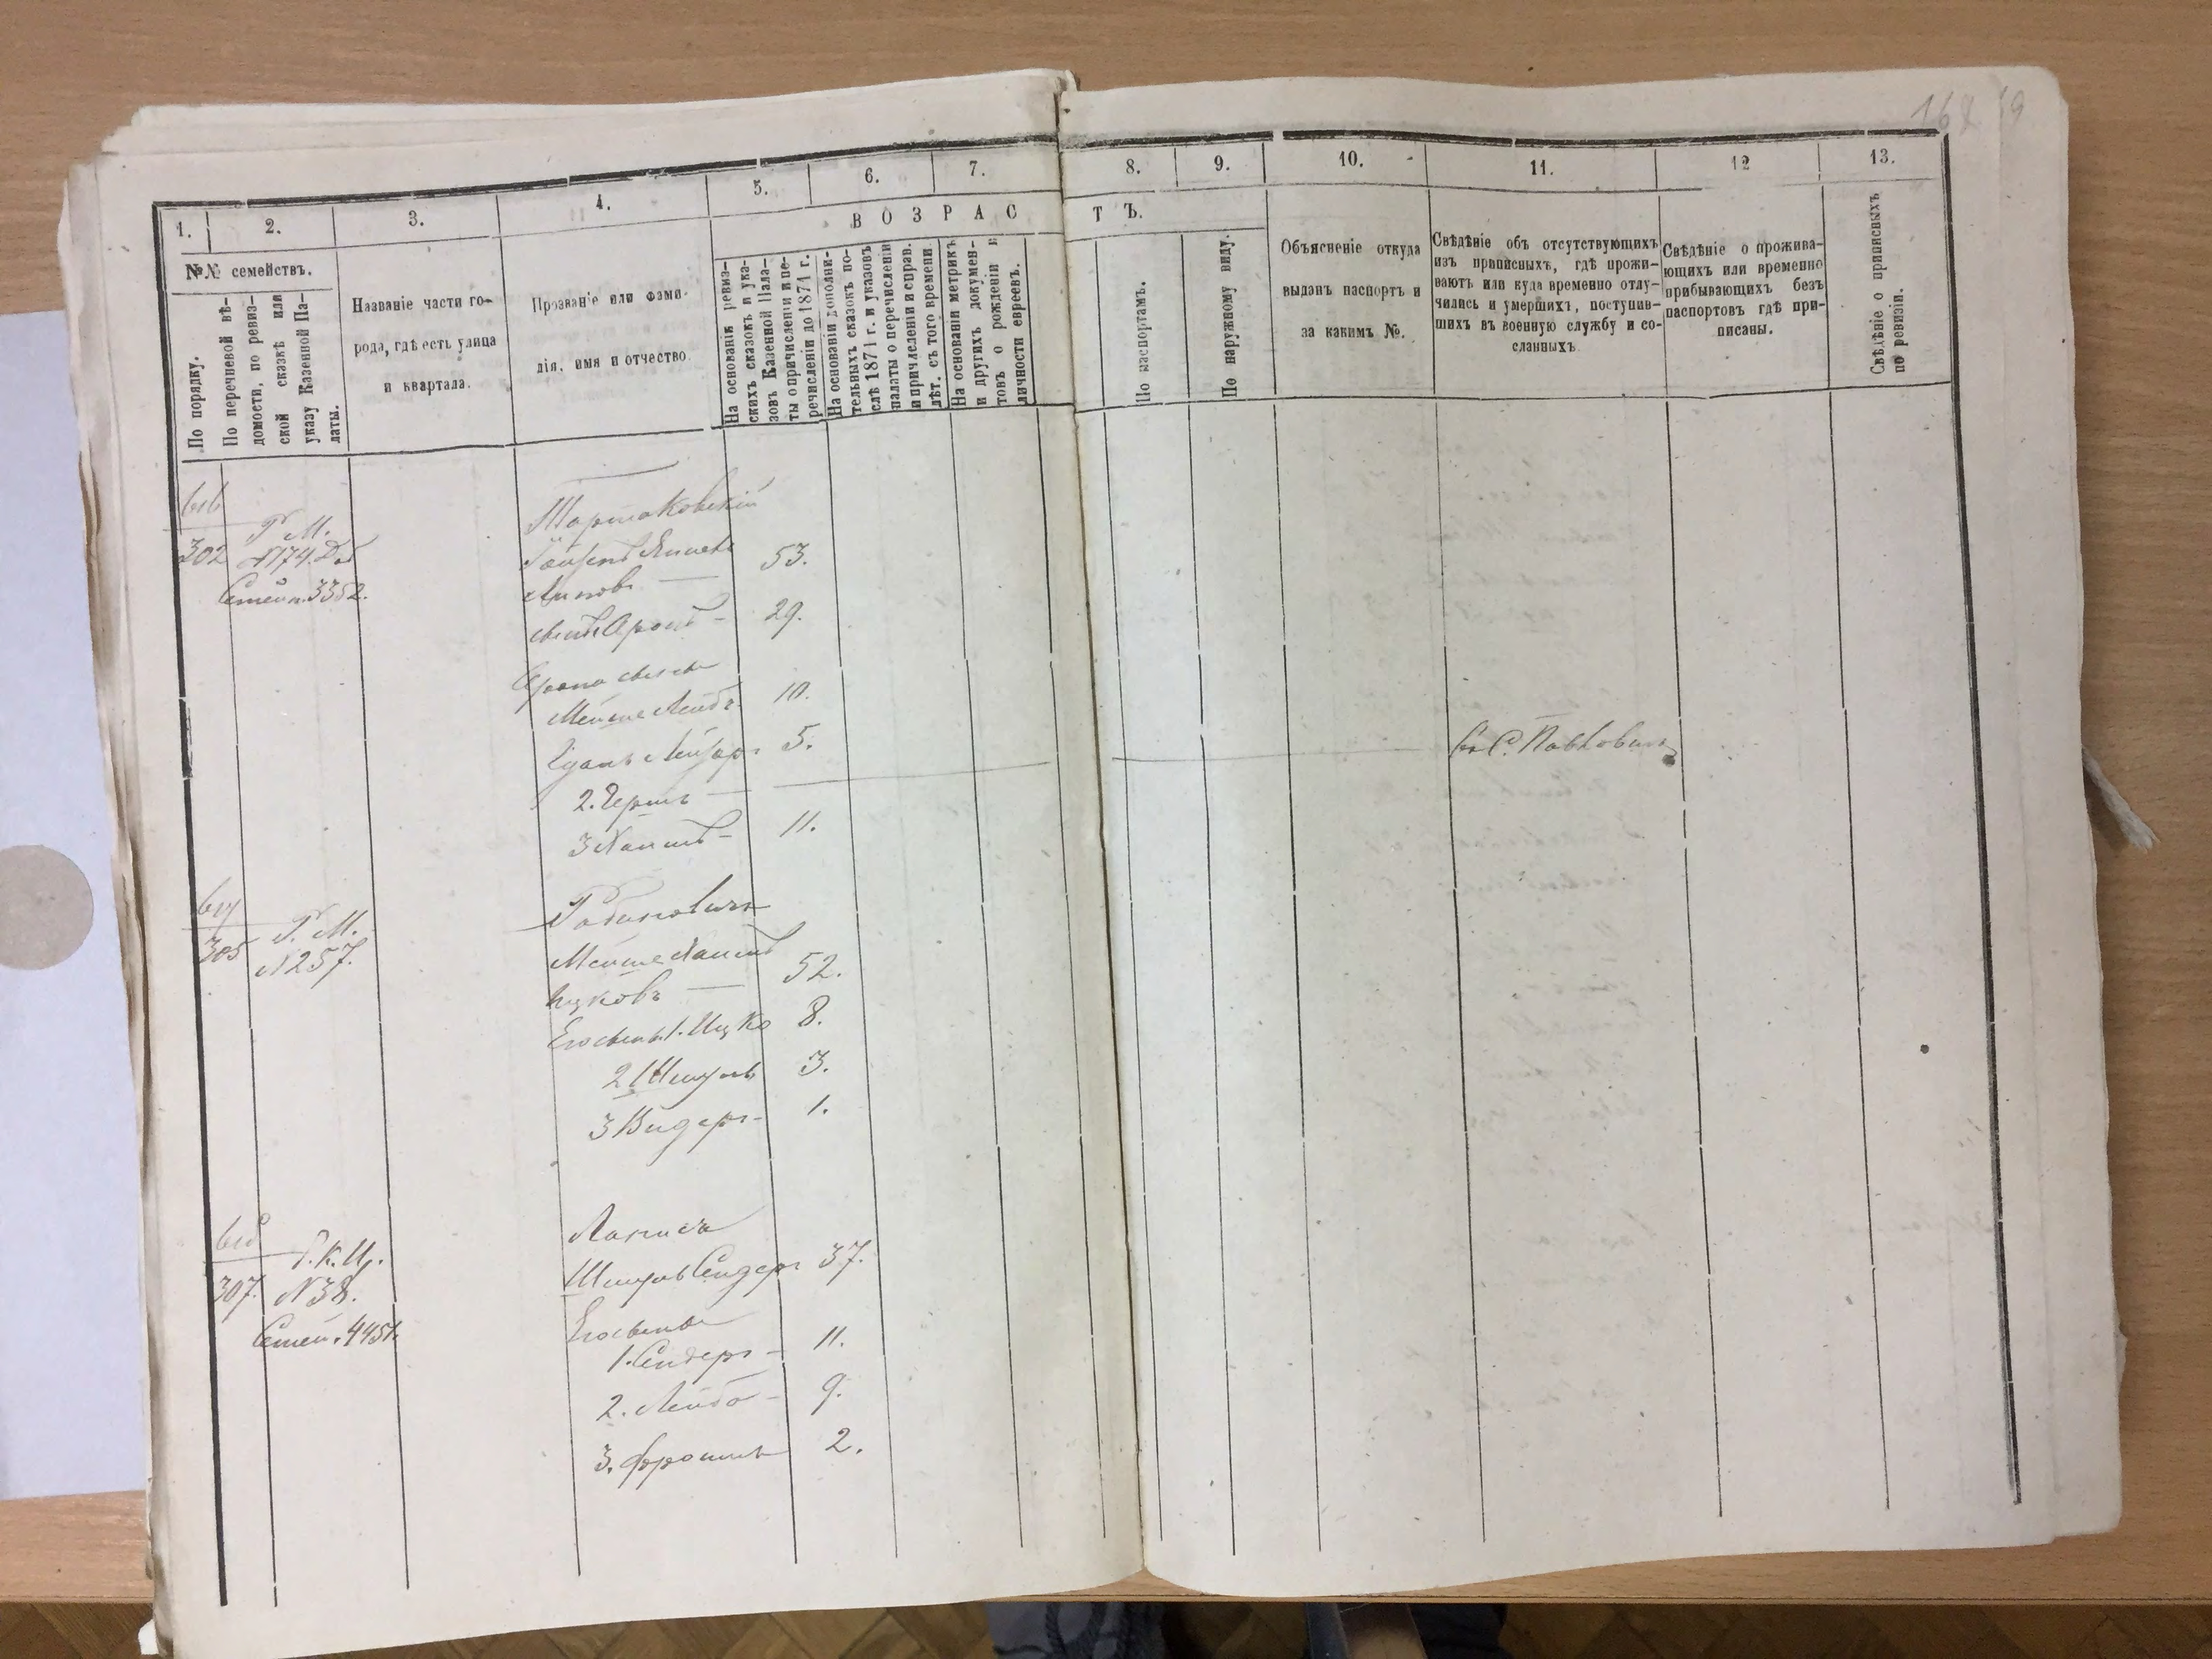 1.
2.
3.
4.
5.
6.
7.
8.
9.
10.
11.
12
13.
№№ семействъ.
ВОЗРАСТЪ.
По порядку.
По перечневой вѣ-
домости, по ревиз-
ской сказкѣ или
указу Казенной Па-
латы.
Названіе части го-
рода, гдѣ есть улица
и квартала.
Прозваніе или фами-
лія, имя и отчество.
На основаніи ревиз-
скихъ сказокъ и ука-
зовъ Казенной Пала-
ты о причисленіи и пе-
речисленіи до 1871 г.
На основаніи дополни-
тельныхъ сказокъ по-
слѣ 1871 г. и указовъ
палаты о перечисленіи
и причисленіи и справ.
лѣт. съ того времени.
На основаніи метрикъ
и другихъ докумен-
товъ о рожденіи и
личности евреевъ.
По паспортамъ.
По наружному виду.
Объясненіе откуда
выданъ паспортъ и
за какимъ №.
Свѣдѣніе объ отсутствующихъ
изъ приписныхъ, гдѣ прожи-
ваютъ или куда временно отлу-
чились и умершихъ, поступив-
шихъ въ военную службу и со-
сланныхъ
Свѣдѣніе о прожива-
ющихъ или временно
прибывающихъ безъ
паспортовъ гдѣ при-
писаны.
Свѣдѣніе о приписныхъ
по ревизіи.
302
Р. М.
№174.
Семейн. 3352.
53.
Аронъ 29.
Арона
Мейше Лейбъ 10.
Лейзеръ 5.
2. Гершъ
въ С.
3 Хаимъ 11.
305
Р. М.
№257.
Рабиновичъ
Мейше Хаимъ
Ицковъ 52.
Его сыны 1. Ицко 8.
2 Шмуль 3.
3 1.
307.
Р. К. И.
№38.
Семей. 4451.
Лаписъ
Шмуль Сендеръ 37.
Его сыны
1. Сендеръ 11.
2. Лейба 9.
3. Фроимъ 2.